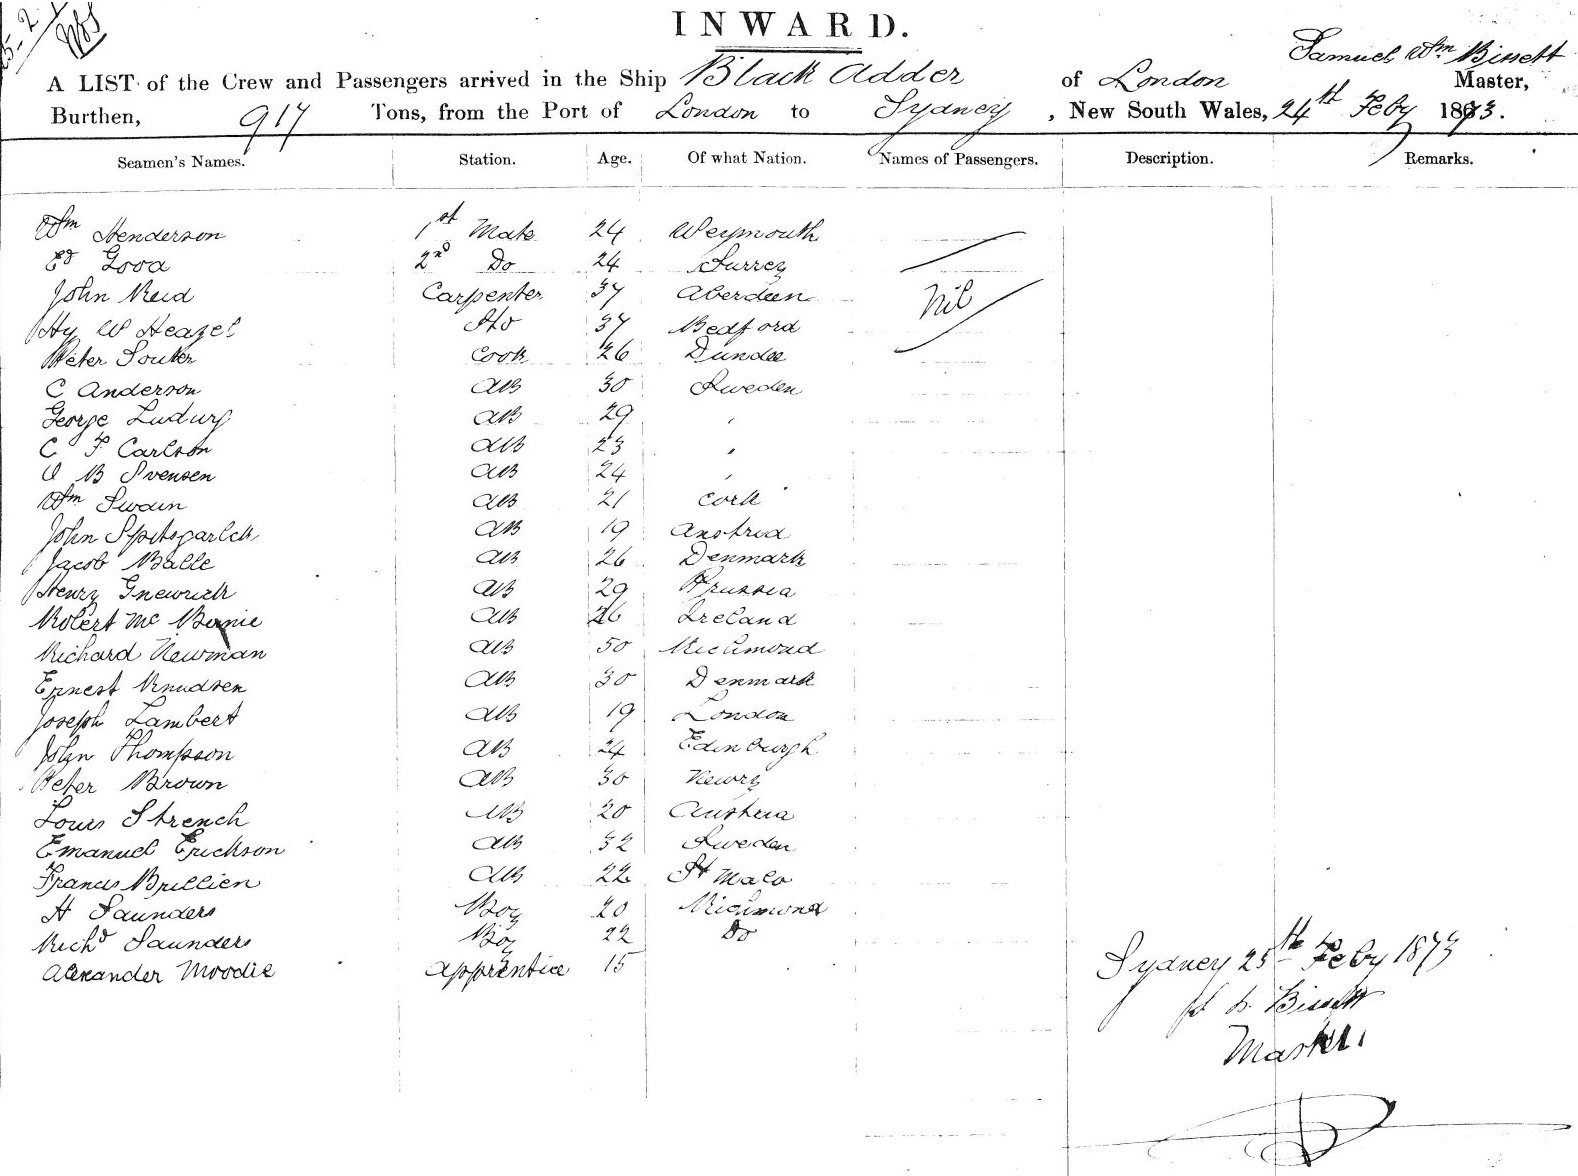 INWARD.
Samuel Wm Bissett
A LIST of the Crew and Passengers arrived in the Ship Black Adder of London Master,
Burthen, 917 Tons, from the Port of London to Sydney, New South Wales, 24th Feby 1873.
Seamen's Names. Station. Age. Of what Nation. Names of Passengers. Description. Remarks.
Wm Henderson 1st Mate 24 Weymouth
Ed Good 2nd Do 24 Surrey
John Reid Carpenter 37 Aberdeen Nil
Hy W Heazel Std 37 Bedford
Peter Souter Cook 26 Dundee
C Anderson AB 30 Sweden
George Ludwig AB 29 "
C F Carlson AB 23 "
O B Svensen AB 24 "
Wm Swain AB 21 Cork
John AB 19 Austria
Jacob Balle AB 26 Denmark
Henry Gnewich AB 29 Prussia
Robert Mc Birnie AB 26 Ireland
Richard Newman AB 50 Richmond
Ernest Knudsen AB 30 Denmark
Joseph Lambert AB 19 London
John Thompson AB 24 Edinburgh
Peter Brown AB 30 Newry
Louis Strench AB 20 Austria
Emanuel Erickson AB 32 Sweden
Francis Brillien AB 22 St Malo
H Saunders Boy 20 Richmond
Richd Saunders Boy 22 Do
Alexander Moodie Apprentice 15
Sydney 25th Feby 1873
Bissett
Master